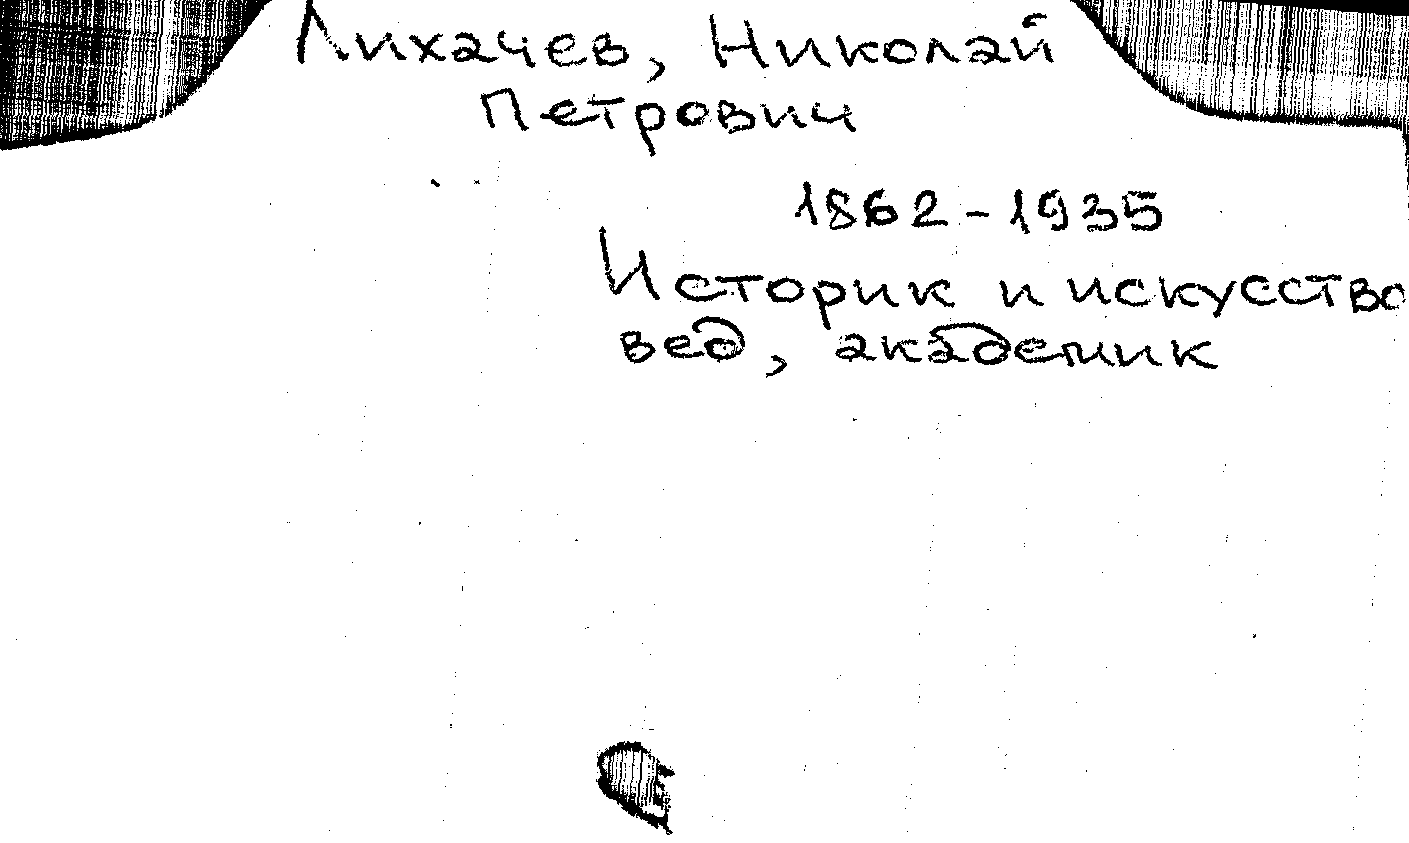 Лихачев, Николай
Петрович
1862-1935
Историк и искусство
вед, академик